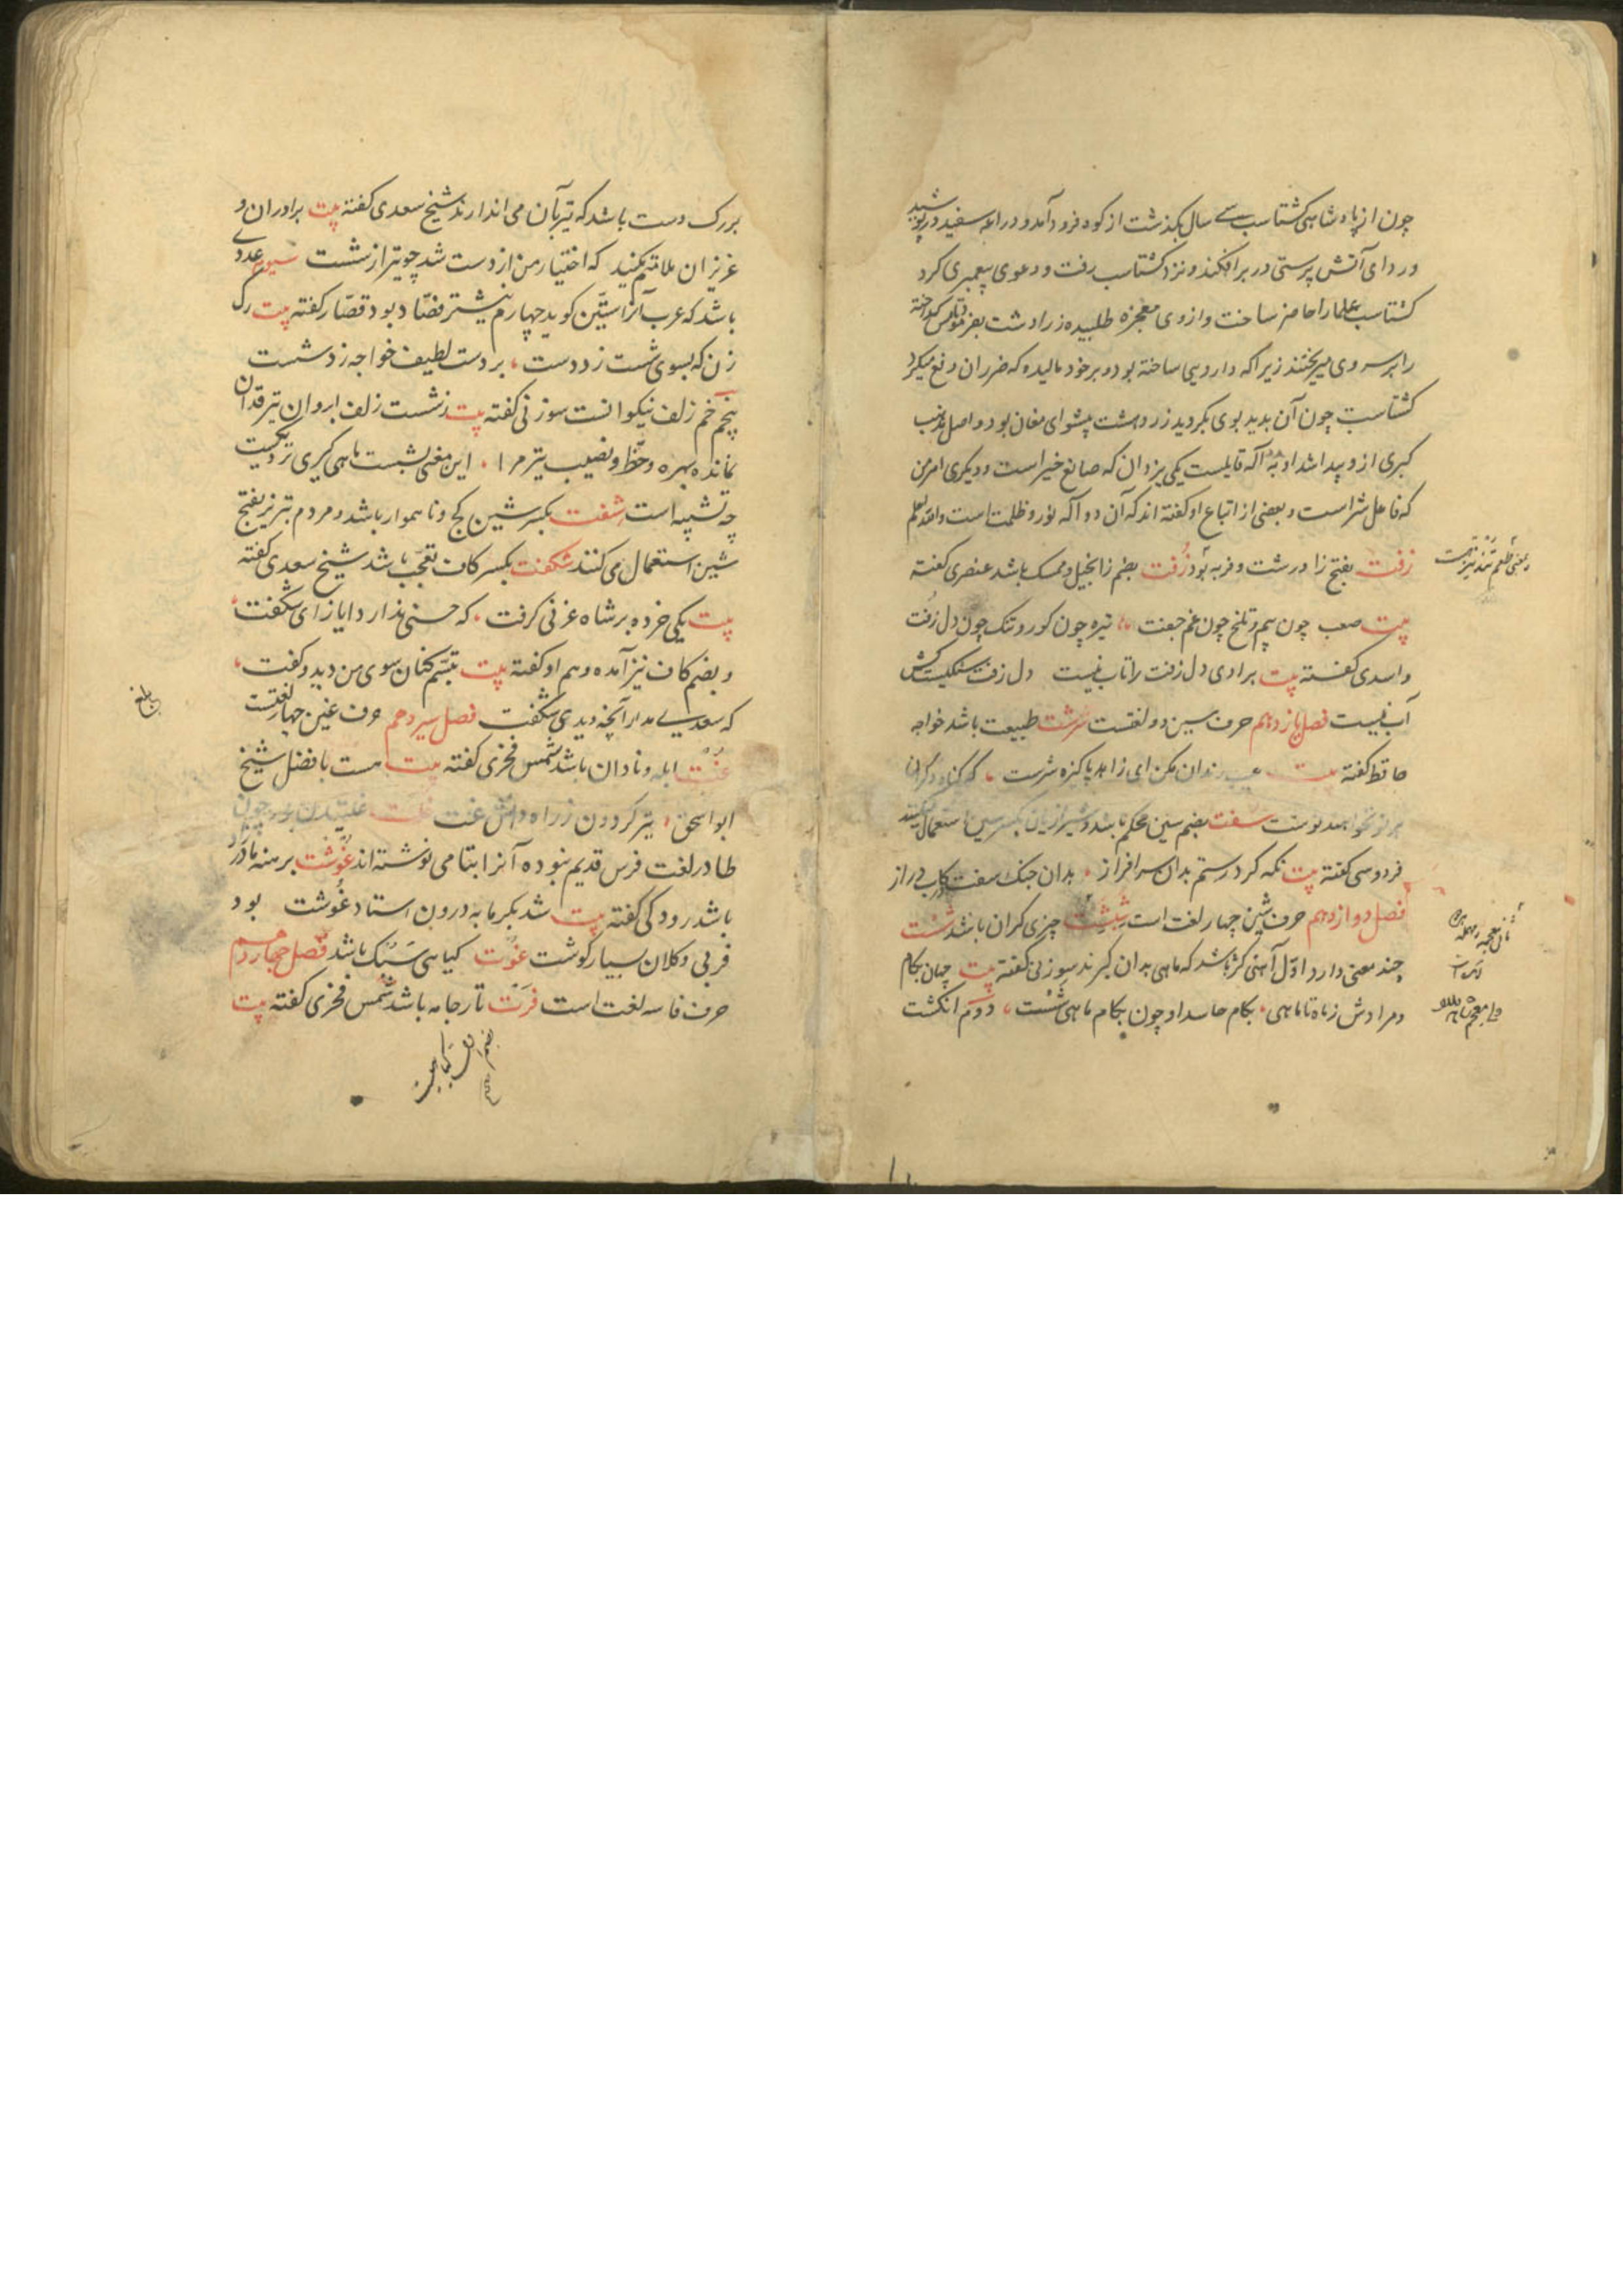 چون از پادشاهی کشتاسب سی سال بگذشت از کوه فرود آمد و دراعه سفید در پوشید
و ردای آتش پرستی در بر افکند و نزد کشتاسب رفت و دعوی پیغمبری کرد
کشتاسب علما را حاضر ساخت و از وی معجزه طلبیده زرادشت بفرمود تا مس گداخته
را بر سر وی میریختند زیرا که دارویی ساخته بود و بر خود مالیده که ضرر ان دفع میکرد
کشتاسب چون آن بدید بوی بگروید زردهشت پیشوای مغان بود و اصل مذهب
کبری ازو پیدا شد او به اله قایلست یکی یزدان که صانع خیر است و دیگری اهرمن
که فاعل شر است و بعضی از اتباع او گفته اند که آن دو اله نور و ظلمت است والله اعلم
زَفت بفتح زا درشت و فربه بود زُفت بضم زا بخیل و ممسک باشد عنصری گفته
بیت صعب چون بیم و تلخ چون غم جفت ، تیره چون کور و تنک چون دل زُفت
و اسدی گفته بیت برادی دل زفت را تاب نیست دل زفت سنگیست کش
آب نیست فصل یازدهم حرف سین دو لغتست سرشت طبیعت باشد خواجه
حافظ گفته بیت عیب رندان مکن ای زاهد پاکیزه سرشت ، که گناه دگران
بر تو نخواهند نوشت سفت بضم سین محکم باشد و شیرازیان بکسر سین استعمال میکنند
فردوسی گفته بیت نکه کرد رستم بدان سرافراز ، بدان جنک سفت رکاب دراز
فصل دوازدهم حرف شین چهار لغت است شِشت چیزی گران باشد شست
چند معنی دارد اول آهنی کژ باشد که ماهی بدان گیرند سوزنی گفته بیت جهان بکام
و مرادش ز ماه تا ماهی ، بکام حاسد او چون بکام ماهی شست ، دوم انکشت
بزرک دست باشد که تیر بآن می اندازند شیخ سعدی گفته بیت برادران و
عزیزان ملامتم مکنید که اختیار من از دست شد چو تیر از شست سیوم عددی
باشد که عرب آنرا ستین کوید چهارم نیشتر فصّاد بود قصّار گفته بیت رک
زن که بسوی شست زد دست ، بر دست لطیف خواجه زد شست
پنجم خم زلف نیکوانست سوزنی گفته بیت ز شست زلف ابروان تیر قدان
نمانده بهره و حظّ و نصیب تیر مرا ، این معنی بشست ماهی کیری نزدیکست
چه تشبیه است شفت بکسر شین کج و ناهموار باشد و مردم تبریز بفتح
شین استعمال می کنند شکفت بکسر کاف تعجب باشد شیخ سعدی گفته
بیت یکی خرده بر شاه غزنی گرفت ، که حسنی ندارد ایاز ای شکفت
و بضم کاف نیز آمده و هم او گفته بیت تبسّم کنان سوی من دید و گفت ،
که سعدی مدار آنچه دیدی شکفت فصل سیزدهم حرف غین چهار لغتست
غُت ابله و نادان باشد شمس فخری گفته بیت هست با فضل شیخ
ابو اسحق ، تیر کردون ز راه دانش غت غلت غلتیدن بود چون
طا در لغت فرس قدیم نبوده آنرا بتا می نوشته اند غوشت برهنه مادرزاد
باشد رودکی گفته بیت شد بگرمابه درون استاد غوشت بود
فربی و کلان بسیار گوشت غوت کیاهی سنک باشد فصل چهاردهم
حرف فا سه لغت است فرت تار جامه باشد شمس فخری گفته بیت